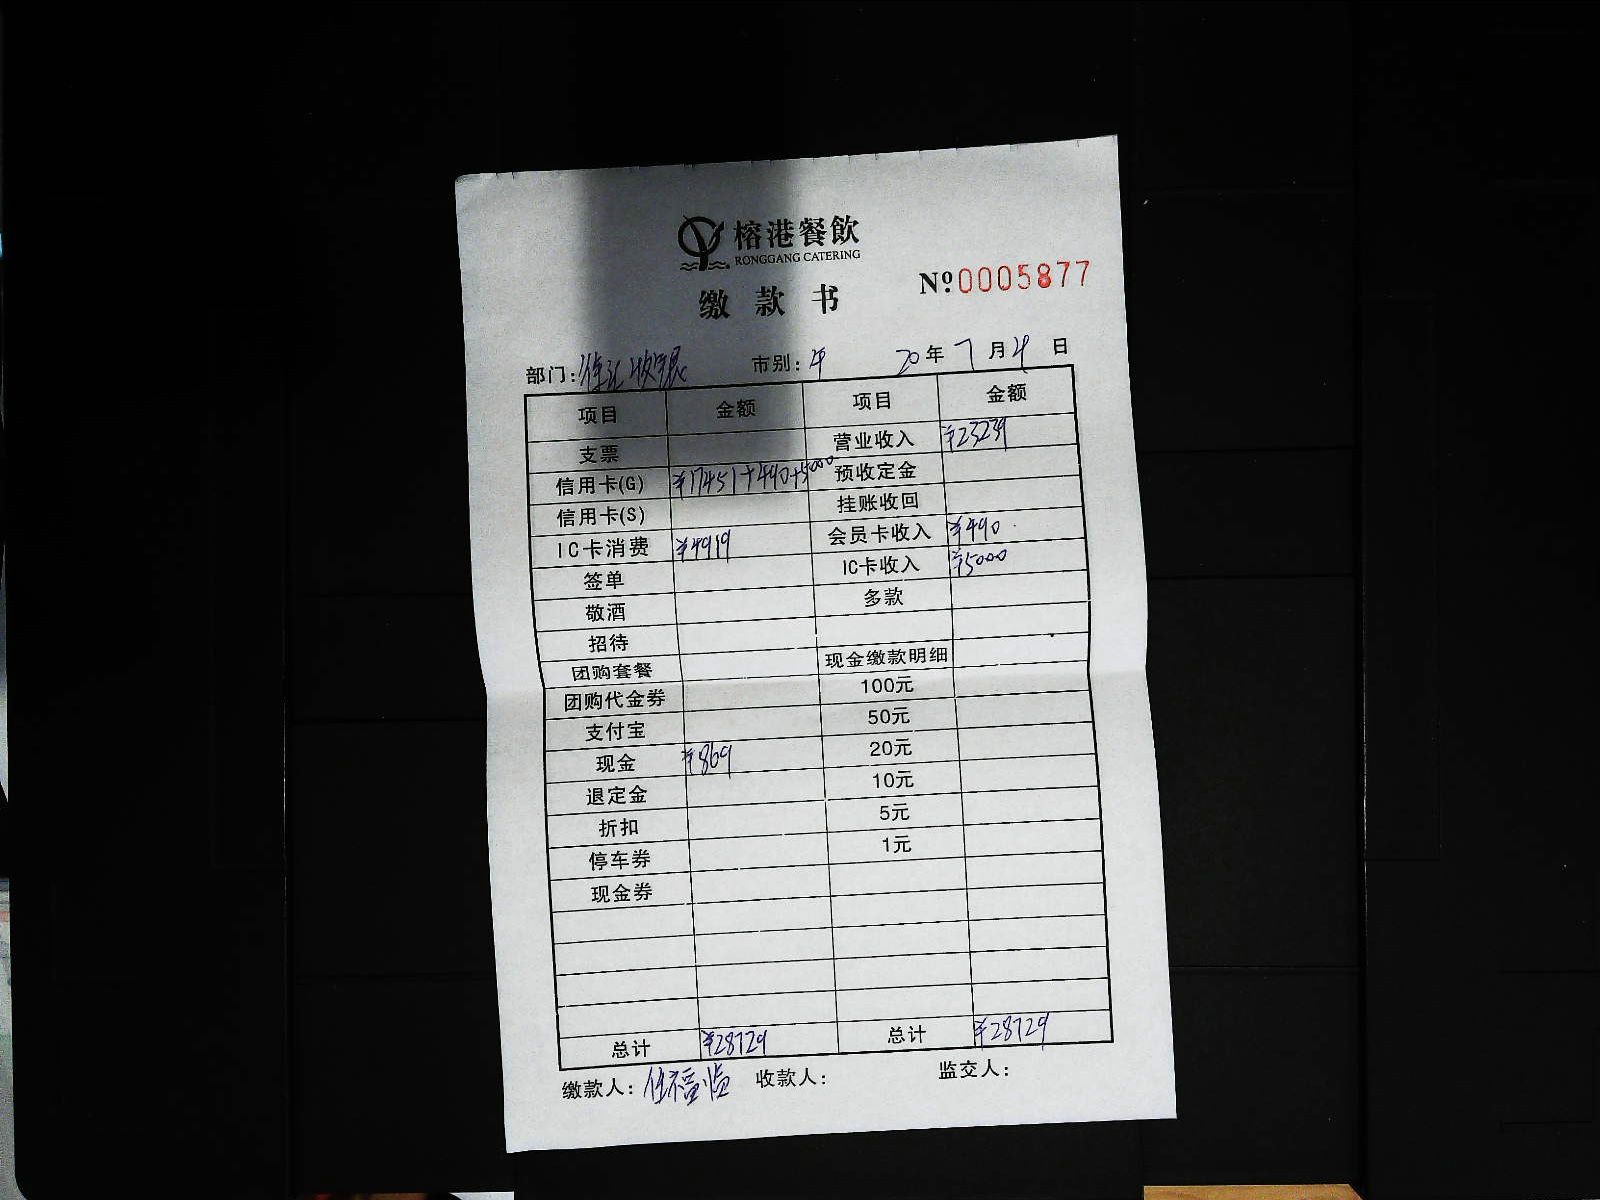 榕港餐飲
RONGGANG CATERING
缴款书
Nº 0005877
部门: 收银 市别: 20年7月4日
项目 金额 项目 金额
支票 营业收入 ¥23239
信用卡(G) ¥17451+490+5000 预收定金
信用卡(S) 挂账收回
IC卡消费 ¥4919 会员卡收入 ¥490
签单 IC卡收入 ¥5000
敬酒 多款
招待
团购套餐 现金缴款明细
团购代金券 100元
支付宝 50元
现金 ¥869 20元
退定金 10元
折扣 5元
停车券 1元
现金券
总计 ¥28729 总计 ¥28729
缴款人: 收款人: 监交人: